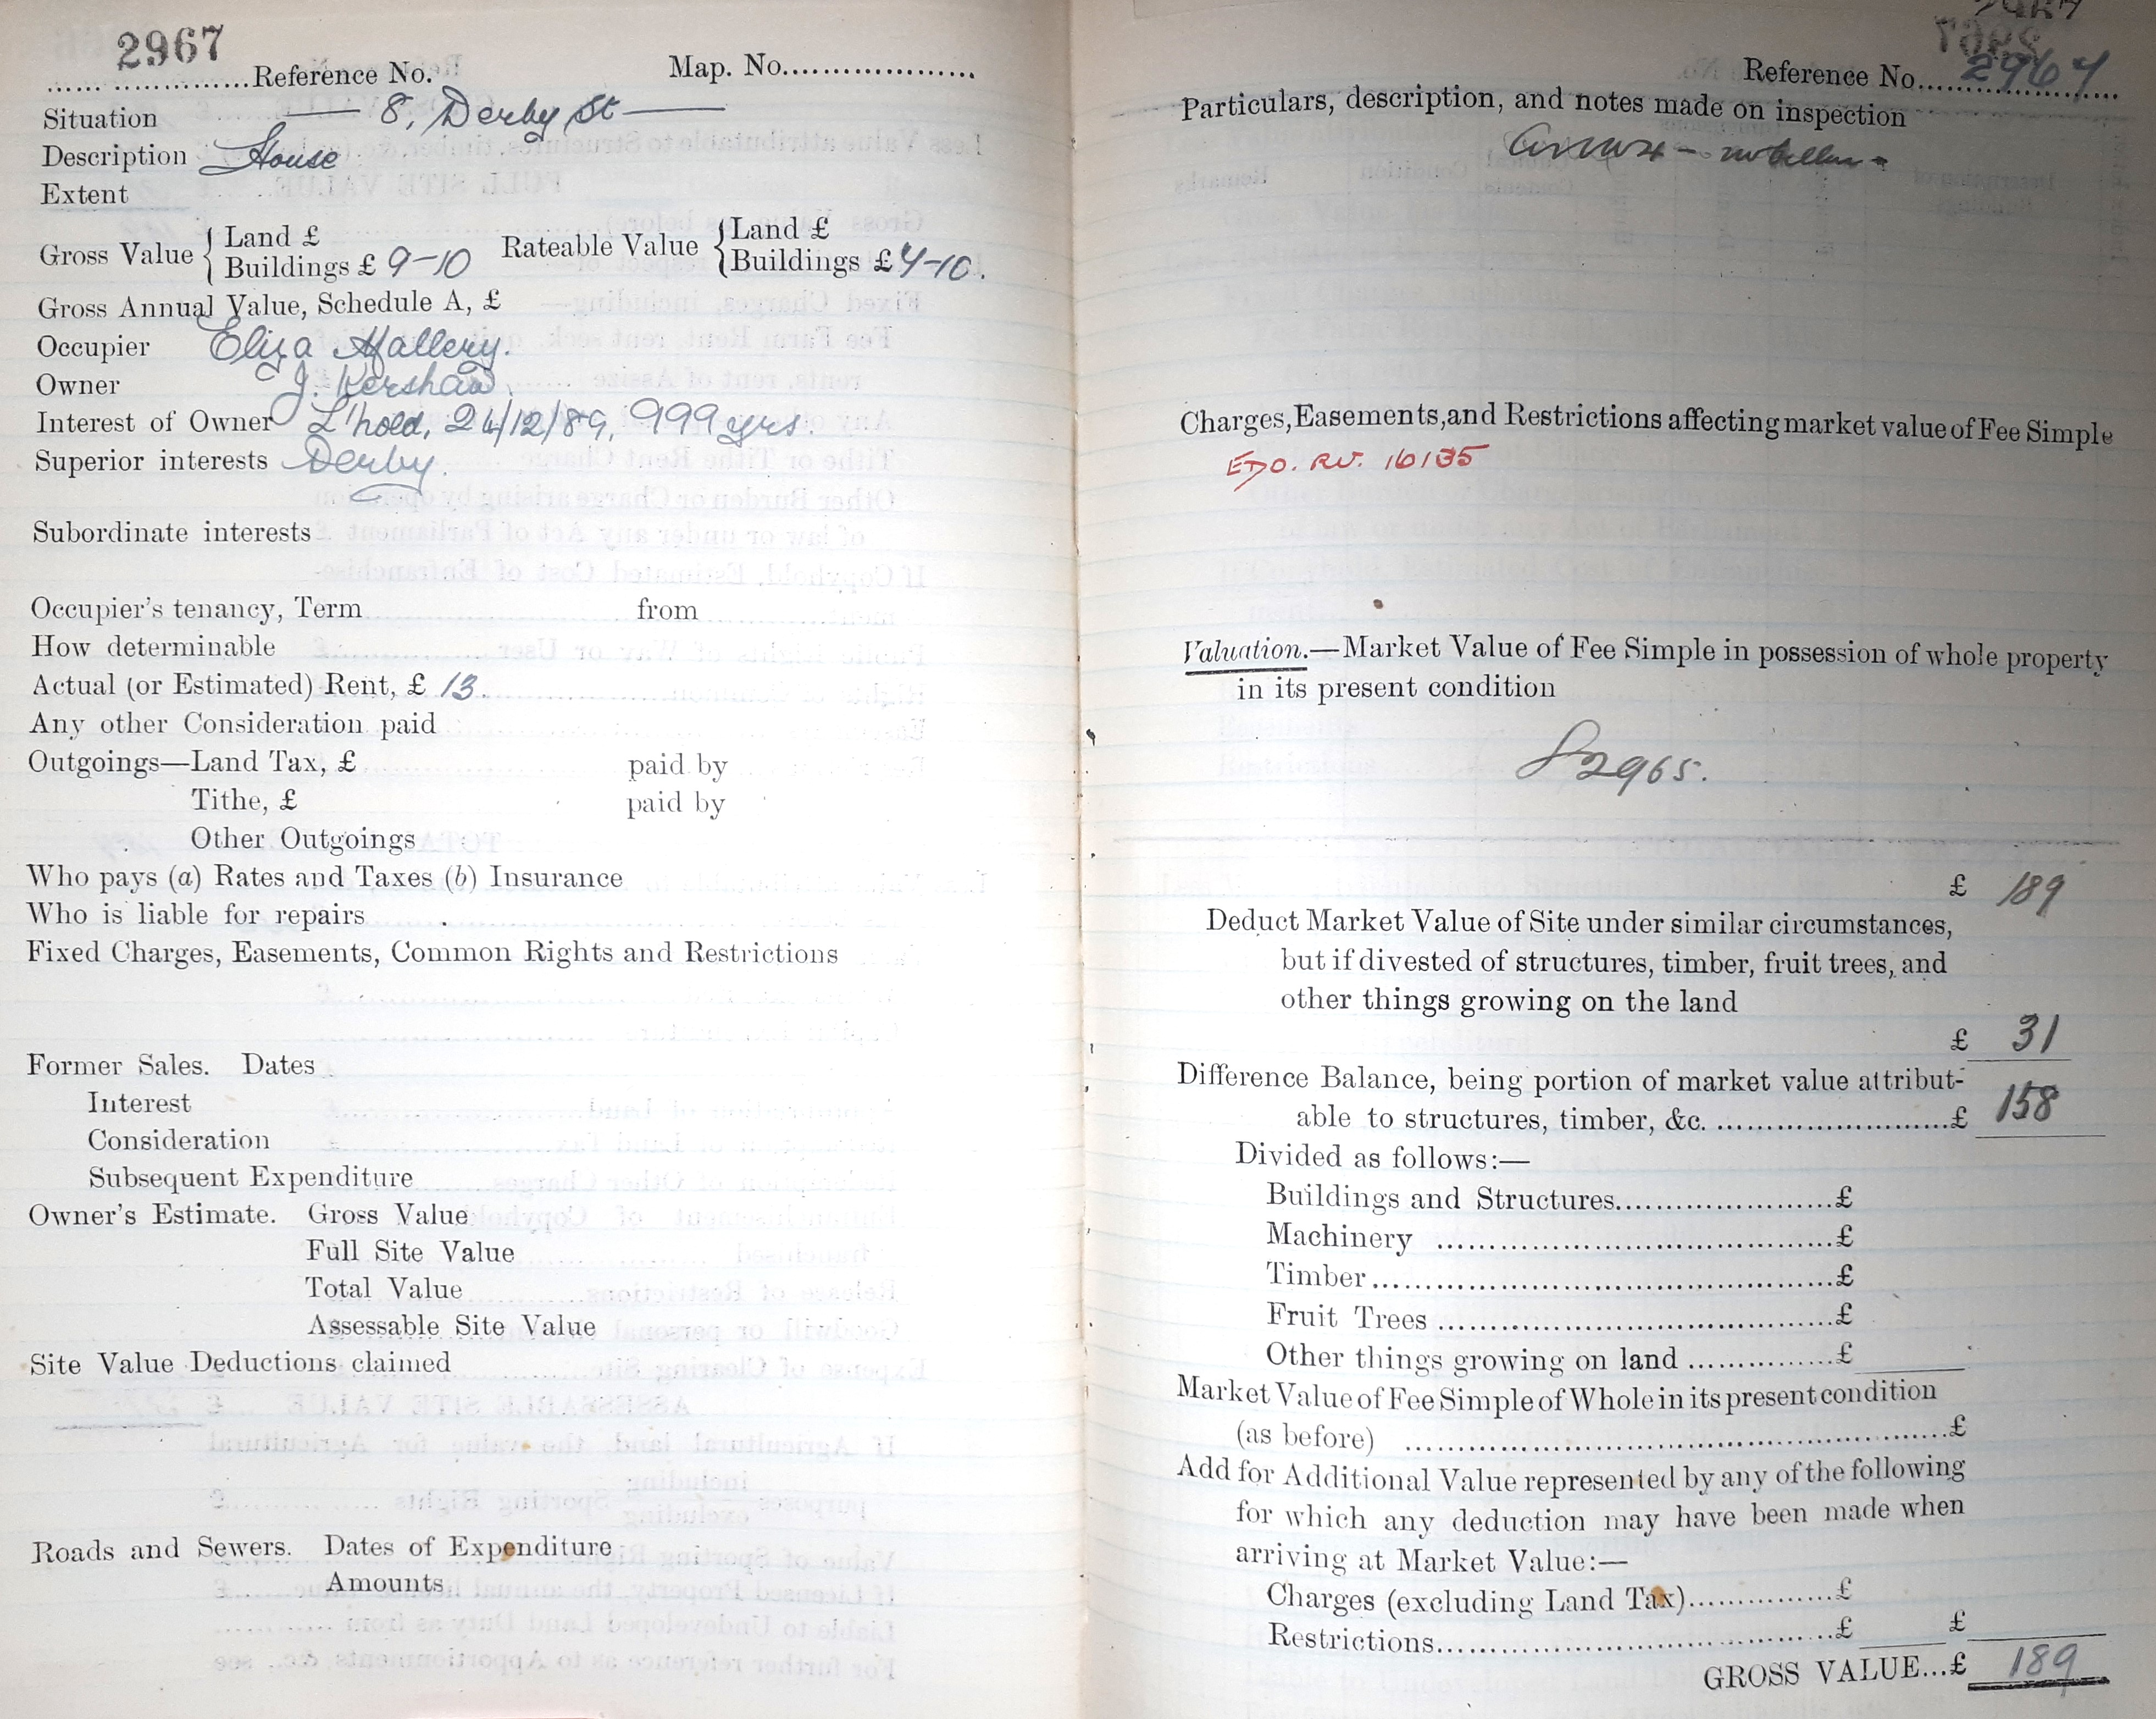 2967
..................Reference No. Map. No....................
Situation — 8, Derby St —
Description House
Extent
Gross Value { Land £ Rateable Value { Land £
Buildings £ 9-10 Buildings £ 4-10.
Gross Annual Value, Schedule A, £
Occupier Eliza Hallery.
Owner J. Kershaw.
Interest of Owner L'hold, 24/12/89, 999 yrs.
Superior interests Derby.
Subordinate interests
Occupier's tenancy, Term from
How determinable
Actual (or Estimated) Rent, £ 13.
Any other Consideration paid
Outgoings—Land Tax, £ paid by
Tithe, £ paid by
Other Outgoings
Who pays (a) Rates and Taxes (b) Insurance
Who is liable for repairs
Fixed Charges, Easements, Common Rights and Restrictions
Former Sales. Dates
Interest
Consideration
Subsequent Expenditure
Owner's Estimate. Gross Value
Full Site Value
Total Value
Assessable Site Value
Site Value Deductions claimed
Roads and Sewers. Dates of Expenditure
Amounts
Reference No. 2967
Particulars, description, and notes made on inspection
Charges, Easements, and Restrictions affecting market value of Fee Simple
EDO. RV. 16135
Valuation.—Market Value of Fee Simple in possession of whole property
in its present condition
2965.
£ 189
Deduct Market Value of Site under similar circumstances,
but if divested of structures, timber, fruit trees, and
other things growing on the land
£ 31
Difference Balance, being portion of market value attribut-
able to structures, timber, &c. ........................£ 158
Divided as follows:—
Buildings and Structures......................£
Machinery ........................................£
Timber..............................................£
Fruit Trees ........................................£
Other things growing on land ...............£
Market Value of Fee Simple of Whole in its present condition
(as before) ......................................................£
Add for Additional Value represented by any of the following
for which any deduction may have been made when
arriving at Market Value:—
Charges (excluding Land Tax)...............£
Restrictions.......................................£ £
GROSS VALUE...£ 189